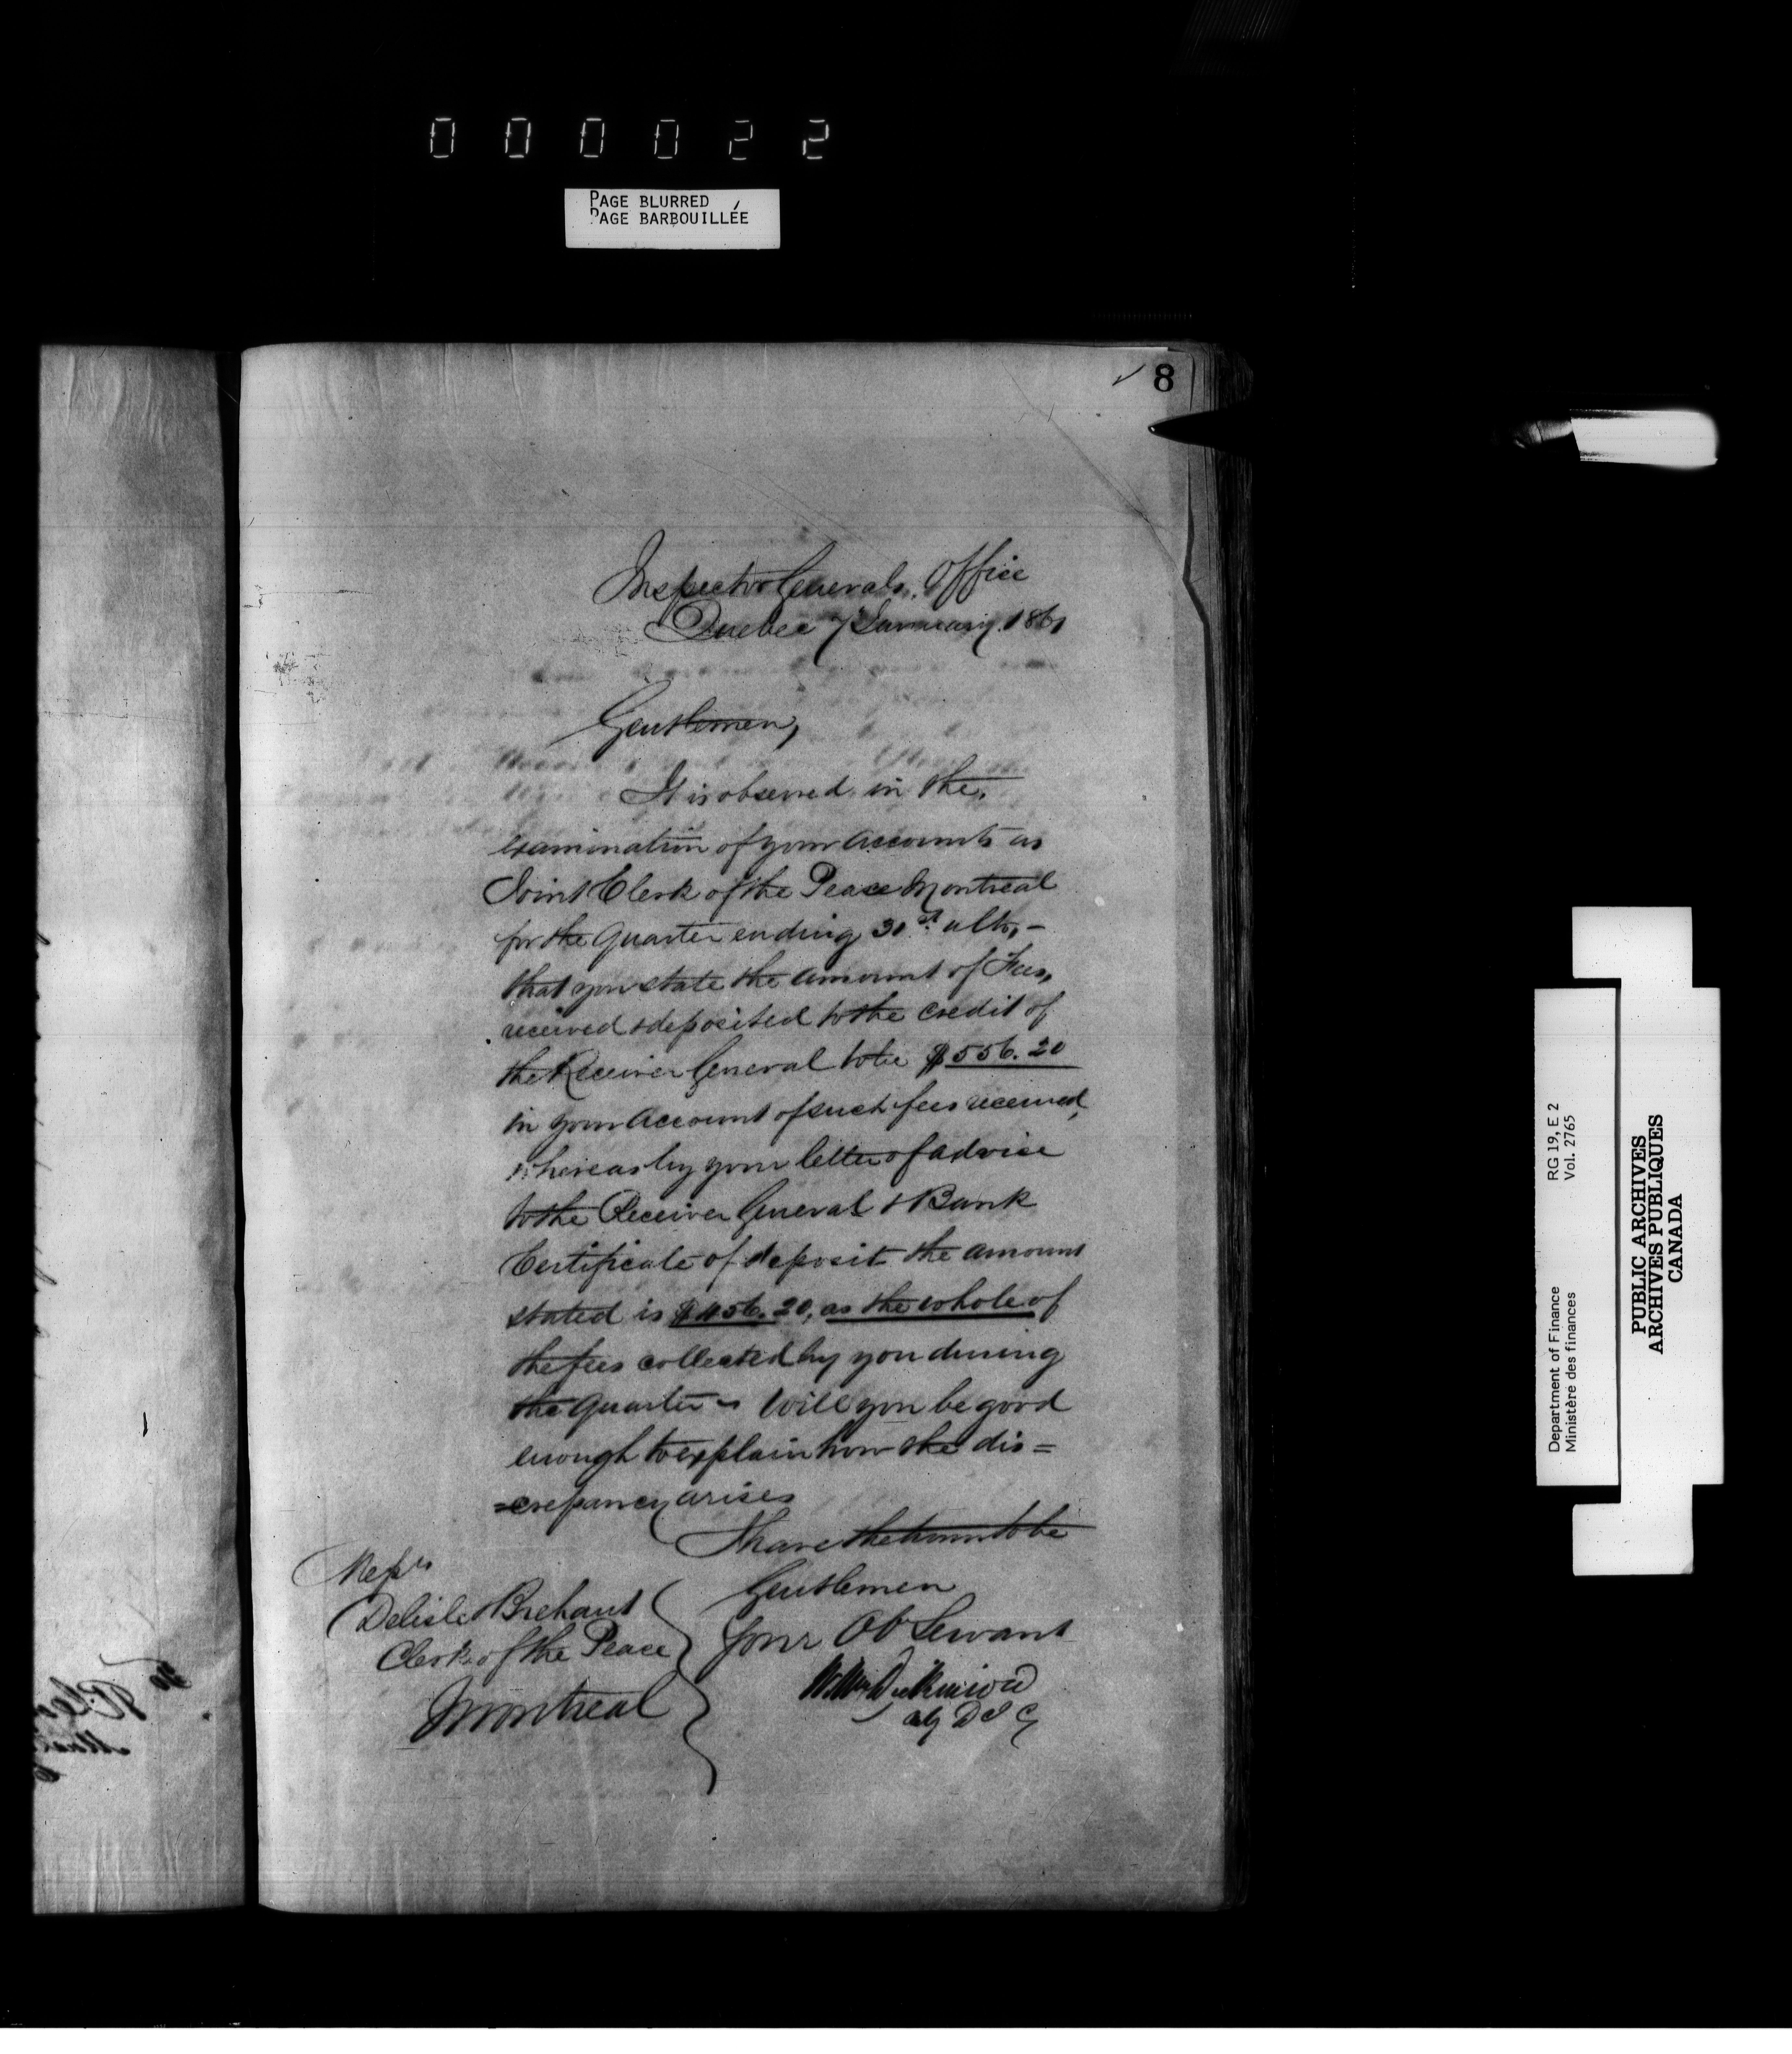 000022
PAGE BLURRED
PAGE BARBOUILLÉE
8
Inspector Generals Office
Quebec 7 January 1861
Gentlemen,
It is observed in the
examination of your accounts as
Joint Clerk of the Peace Montreal
for the Quarter ending 30st ulto, -
that you state the amount of Fees,
received & deposited to the credit of
the Receiver General to be $556.20
in your account of such fees received,
whereas by your letter of advice
to the Receiver General & Bank
Certificate of deposit the amount
stated is $456.20, as the whole of
the fees collected by you during
the quarter - Will you be good
enough to explain how the dis=
=crepancy arises
I have the honor to be
Gentlemen
Your Ob Servant
Wm Dickinson
Actg D I G
Messrs
Delisle & Brehaut
Clerk of the Peace
Montreal
Department of Finance
Ministère des finances
RG 19, E 2
Vol. 2765
PUBLIC ARCHIVES
ARCHIVES PUBLIQUES
CANADA